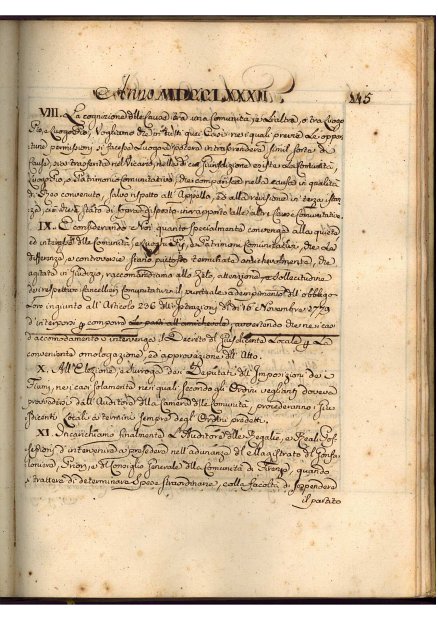 Anno MDCCLXXXII. 245
VIII. La cognizione delle Cause tra una Comunità, e l'altra, o tra Luogo
Pio, e Luogo Pio, Vogliamo che in tutti quei Casi nei quali previe le oppor-
tune permissioni si faceva Luogo, o poteva intraprendersi simil sorte di
Cause, sia trasferita nel Vicario, nella di cui giurisdizione esiste la Comunità,
Luogo Pio, o Patrimonio Comunitativo, che comparisce nella causa in qualità
di Reo convenuto, salvo rispetto all'Appello, ed alla revisione in terza istan-
za, ciò che è stato di sopra disposto in rapporto alle altre Cause Comunitative.
IX. E considerando Noi quanto specialmente convenga alla quiete
ed interesse delle Comunità, Luoghi Pii, e Patrimoni Comunitativi, che le
differenze, e controversie siano piuttosto terminate amichevolmente, che
agitate in Giudizio, raccomandiamo allo Zelo, attenzione, e sollecitudine
dei respettivi Cancellieri Comunitativi il puntuale adempimento dell'obbligo
loro ingiunto all'Articolo 236 dell'Istruzioni de' dì 16 Novembre 1779
d'interporsi per comporre le parti all'amichevole, avvertendo che nei casi
d'accomodamento v'intervenga il Decreto del Giusdicente Locale per la
conveniente omologazione, ed approvazione dell'Atto.
X. All'Elezione, e surroga dei Deputati dell'Imposizioni dei
Fiumi, nei casi solamente nei quali secondo gli Ordini veglianti doveva
provvedersi dall'Auditore della Camera delle Comunità, provvederanno i Giu-
sdicenti Locali a termini sempre degli Ordini predetti.
XI. Incarichiamo finalmente l'Auditore delle Regalie, e Reali Pos-
sessioni d'intervenire a presedere nell'adunanze del Magistrato del Gonfa-
loniere, Priori, e del Consiglio Generale della Comunità di Firenze, quando
si tratterà di determinare spese straordinarie, colla facoltà di sospendere
il partito